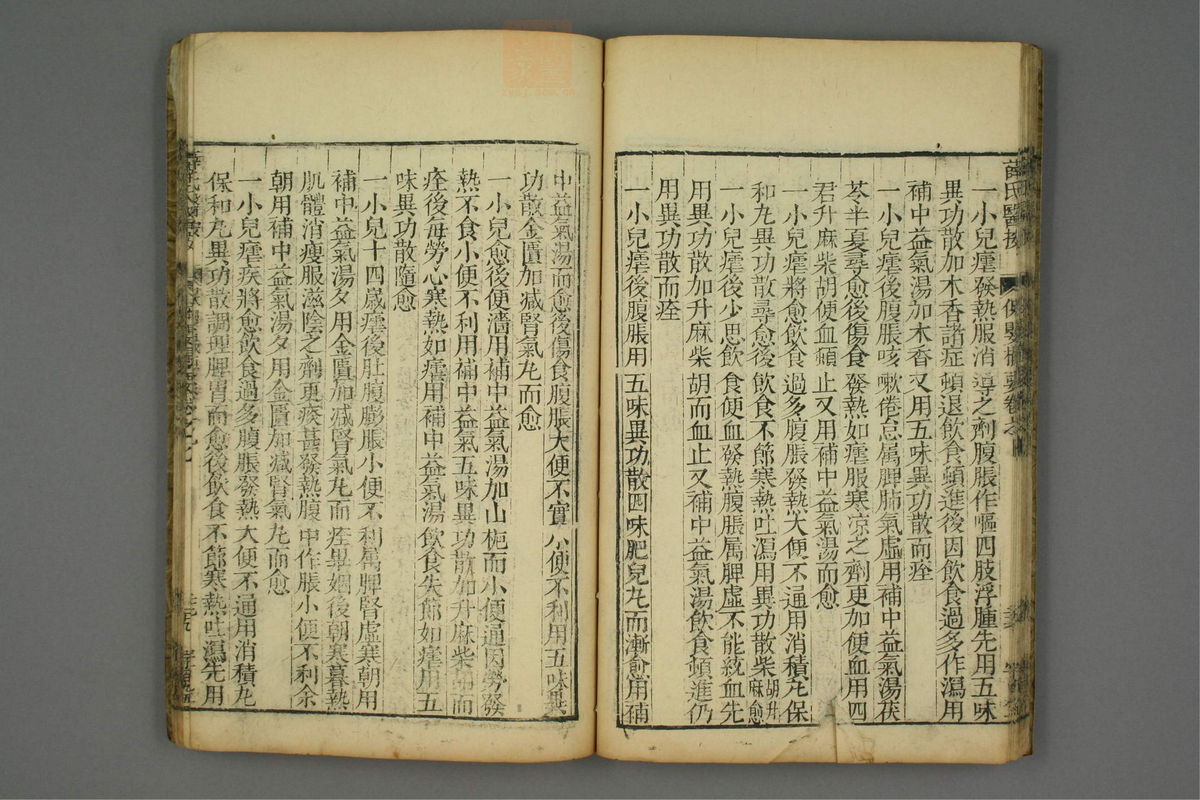 薛氏醫按 保嬰撮要卷之
一小兒瘧發熱服消導之劑腹脹作嘔四肢浮腫先用五味
異功散加木香諸症頓退飲食頓進後因飲食過多作瀉用
補中益氣湯加木香又用五味異功散而痊
一小兒瘧後腹脹咳嗽倦怠属脾肺氣虛用補中益氣湯茯
苓半夏尋愈後傷食發熱如瘧服寒凉之劑更加便血用四
君升麻柴胡便血頓止又用補中益氣湯而愈
一小兒瘧將愈飲食過多腹脹發熱大便不通用消積丸保
和丸異功散尋愈後飲食不節寒熱吐瀉用異功散柴胡升麻愈
一小兒瘧後少思飲食便血發熱腹脹属脾虛不能統血先
用異功散加升麻柴胡而血止又補中益氣湯飲食頓進仍
用異功散而痊
一小兒瘧後腹脹用五味異功散四味肥兒丸而漸愈用補
中益氣湯而愈後傷食腹脹大便不實小便不利用五味異
功散金匱加减腎氣丸而愈
一小兒愈後便濇用補中益氣湯加山梔而小便通因勞發
熱不食小便不利用補中益氣五味異功散加升麻柴胡而
痊後每勞心寒熱如瘧用補中益氣湯飲食失節如瘧用五
味異功散隨愈
一小兒十四歲瘧後肚腹膨脹小便不利属脾腎虛寒朝用
補中益氣湯夕用金匱加减腎氣丸而痊畢姻後朝寒暮熱
肌體消瘦服滋陰之劑更痰甚發熱腹中作脹小便不利余
朝用補中益氣湯夕用金匱加减腎氣丸而愈
一小兒瘧疾將愈飲食過多腹脹發熱大便不通用消積丸
保和丸異功散調理脾胃而愈後飲食不節寒熱吐瀉先用